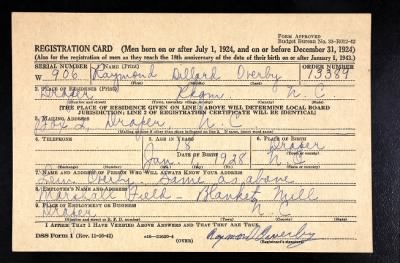 FORM APPROVED
Budget Bureau No. 33-R012-42
REGISTRATION CARD (Men born on or after July 1, 1924, and on or before December 31, 1924)
(Also for the registration of men as they reach the 18th anniversary of the date of their birth on or after January 1, 1943.)
SERIAL NUMBER 1. NAME (Print) ORDER NUMBER
W 906 Raymond Dillard Overby 13389
(First) (Middle) (Last)
2. PLACE OF RESIDENCE (Print)
Draper N.C.
(Number and street) (Town, township, village, or city) (County) (State)
[THE PLACE OF RESIDENCE GIVEN ON LINE 2 ABOVE WILL DETERMINE LOCAL BOARD
JURISDICTION; LINE 2 OF REGISTRATION CERTIFICATE WILL BE IDENTICAL]
3. MAILING ADDRESS
Box 2, Draper N.C.
[Mailing address if other than place indicated on line 2. If same, insert word same]
4. TELEPHONE 5. AGE IN YEARS 6. PLACE OF BIRTH
18 Draper
DATE OF BIRTH (Town or county)
Jan. 1928 N.C.
(Exchange) (Number) (Mo.) (Day) (Yr.) (State or country)
7. NAME AND ADDRESS OF PERSON WHO WILL ALWAYS KNOW YOUR ADDRESS
Overby Same as above
8. EMPLOYER'S NAME AND ADDRESS
Marshall Field - Blanket Mill
9. PLACE OF EMPLOYMENT OR BUSINESS
Draper N.C.
(Number and street or R. F. D. number) (Town) (County) (State)
I AFFIRM THAT I HAVE VERIFIED ABOVE ANSWERS AND THAT THEY ARE TRUE.
DSS Form 1 (Rev. 11-16-42) (OVER) Raymond Overby
(Registrant's signature)